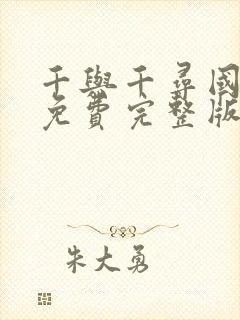 千與千尋國
免費完整版
朱大勇